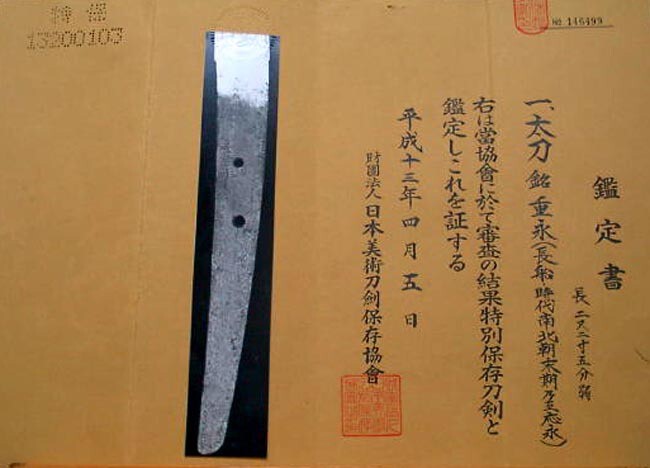 特保
13200103
No 146499
鑑定書
一、太刀 銘 重永(長船 時代南北朝末期乃至応永)
長 二尺二寸五分弱
右は當協會に於て審査の結果特別保存刀剣と
鑑定しこれを証する
平成十三年四月五日
財團法人 日本美術刀劍保存協會